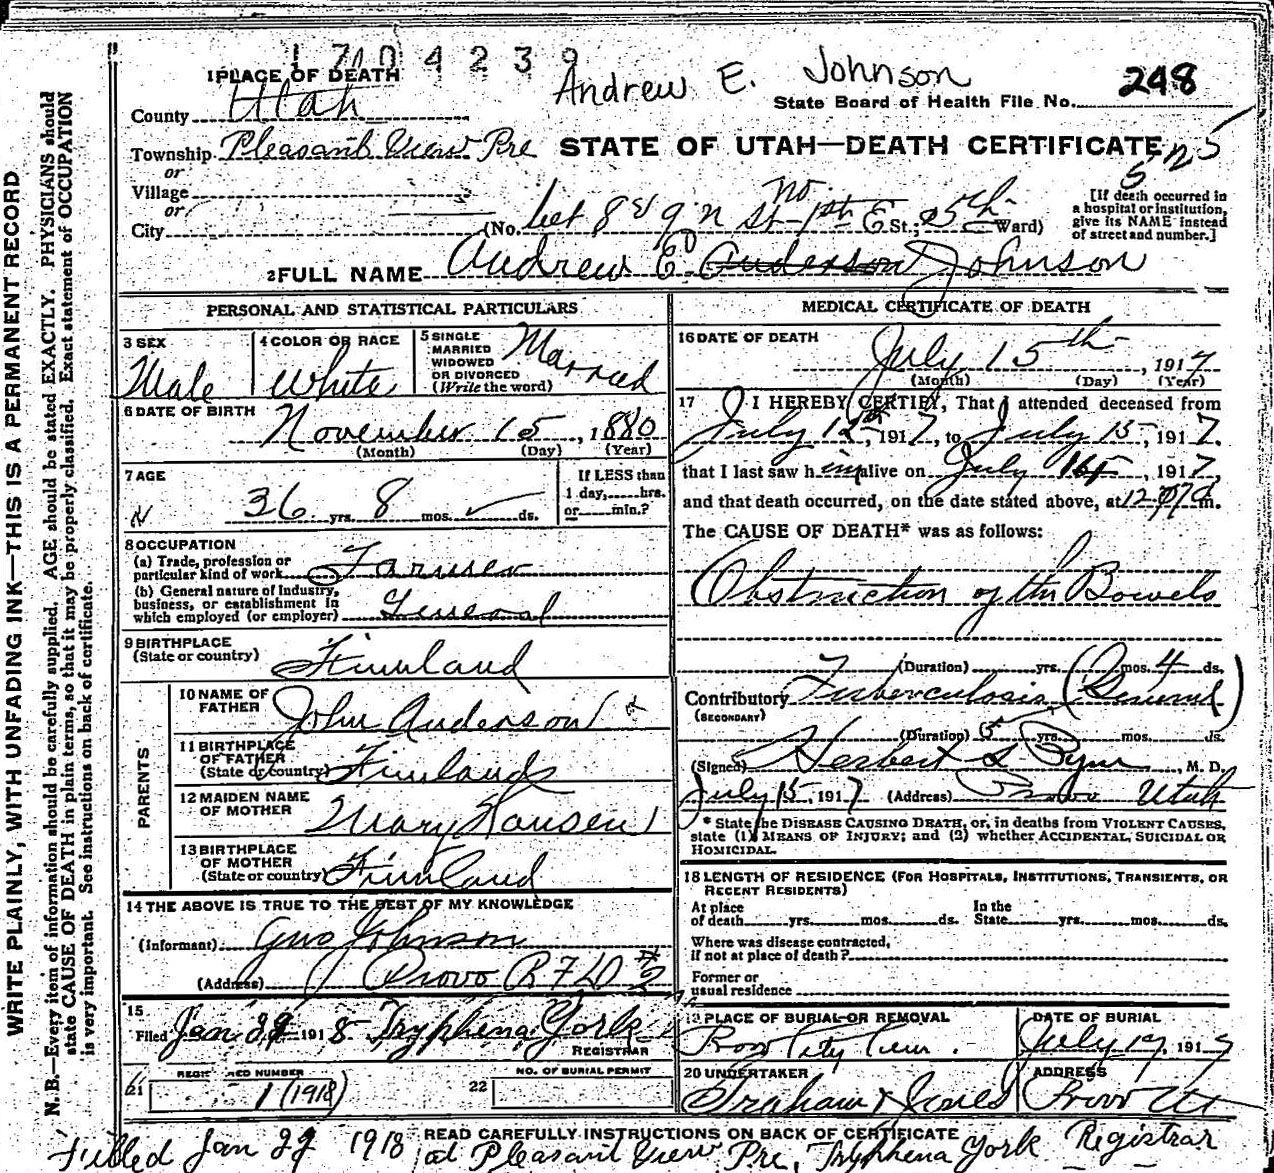 1704239
Andrew E. Johnson
1 PLACE OF DEATH
County Utah
State Board of Health File No. 248
Township Pleasant View Pre
STATE OF UTAH—DEATH CERTIFICATE
or
Village
or
City
(No. bet 8 & 9 N St 1st E St.; 5th Ward)
[If death occurred in a hospital or institution, give its NAME instead of street and number.]
2 FULL NAME Andrew E Anderson Johnson
PERSONAL AND STATISTICAL PARTICULARS
3 SEX
Male
4 COLOR OR RACE
White
5 SINGLE MARRIED WIDOWED OR DIVORCED (Write the word)
Married
6 DATE OF BIRTH
November 15, 1880
(Month) (Day) (Year)
7 AGE
36 yrs. 8 mos. ds.
If LESS than 1 day, hrs. or min.?
8 OCCUPATION
(a) Trade, profession or particular kind of work Farmer
(b) General nature of Industry, business, or establishment in which employed (or employer) General
9 BIRTHPLACE (State or country) Finnland
PARENTS
10 NAME OF FATHER John Anderson
11 BIRTHPLACE OF FATHER (State or country) Finnland
12 MAIDEN NAME OF MOTHER Mary Hansen
13 BIRTHPLACE OF MOTHER (State or country) Finnland
14 THE ABOVE IS TRUE TO THE BEST OF MY KNOWLEDGE
(Informant) Johnson
(Address) Provo R F D #2
15
Filed Jan 29 1918 Tryphena York
REGISTRAR
21 REGISTERED NUMBER
1 (1918)
22 NO. OF BURIAL PERMIT
MEDICAL CERTIFICATE OF DEATH
16 DATE OF DEATH
July 15th, 1917
(Month) (Day) (Year)
17 I HEREBY CERTIFY, That I attended deceased from
July 12th, 1917, to July 15, 1917.
that I last saw him alive on July 15, 1917,
and that death occurred, on the date stated above, at 12 m.
The CAUSE OF DEATH* was as follows:
Obstruction of the Bowels
(Duration) yrs. 0 mos. 4 ds.
Contributory Tuberculosis (General)
(SECONDARY)
(Duration) 5 yrs. mos. ds.
(Signed) Herbert S. Pyne, M. D.
July 15, 1917 (Address) Provo Utah
* State the DISEASE CAUSING DEATH, or, in deaths from VIOLENT CAUSES, state (1) MEANS OF INJURY; and (2) whether ACCIDENTAL, SUICIDAL OR HOMICIDAL.
18 LENGTH OF RESIDENCE (FOR HOSPITALS, INSTITUTIONS, TRANSIENTS, OR RECENT RESIDENTS)
At place of death yrs. mos. ds. In the State yrs. mos. ds.
Where was disease contracted, if not at place of death?
Former or usual residence
19 PLACE OF BURIAL OR REMOVAL
Provo City Cem.
DATE OF BURIAL
July 17, 1917
20 UNDERTAKER
Graham & Jones
ADDRESS
Provo Ut
READ CAREFULLY INSTRUCTIONS ON BACK OF CERTIFICATE
Filled Jan 29 1918 at Pleasant View Pre, Tryphena York Registrar
WRITE PLAINLY, WITH UNFADING INK—THIS IS A PERMANENT RECORD
N. B.—Every item of information should be carefully supplied. AGE should be stated EXACTLY. PHYSICIANS should
state CAUSE OF DEATH in plain terms, so that it may be properly classified. Exact statement of OCCUPATION
is very important. See instructions on back of certificate.